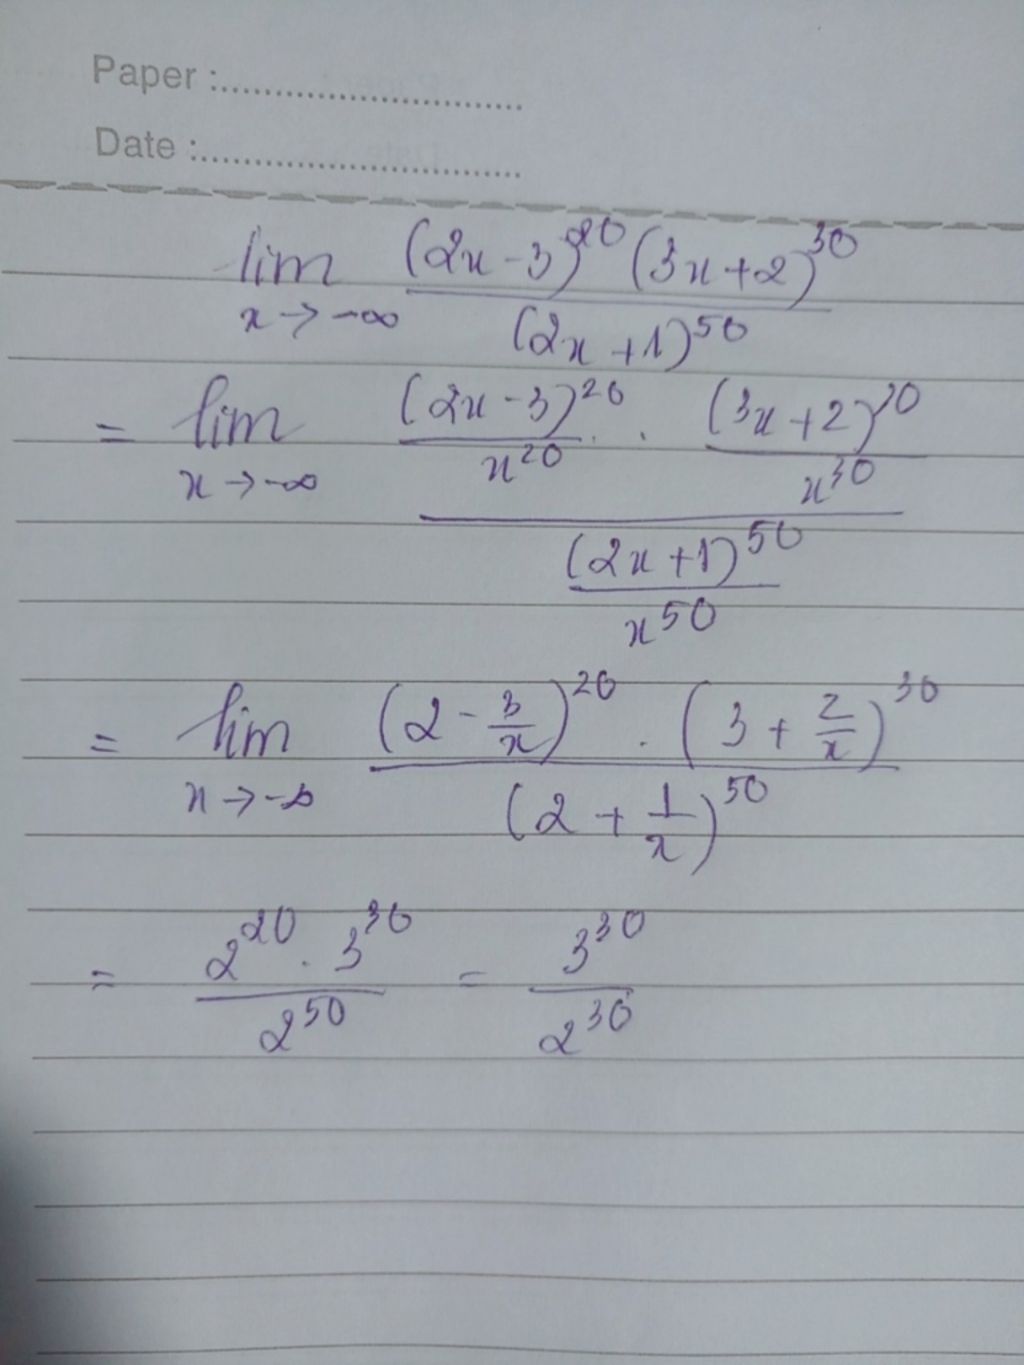 Paper :..............................
Date :..............................
lim (2x-3)^20 (3x+2)^30
x→-∞ (2x+1)^50
= lim (2x-3)^20 . . (3x+2)^30
x→-∞ x^20 x^30
(2x+1)^50
x^50
= lim (2 - 3/x)^20 . (3 + 2/x)^30
x→-∞ (2 + 1/x)^50
= 2^20 . 3^30 = 3^30
2^50 2^30